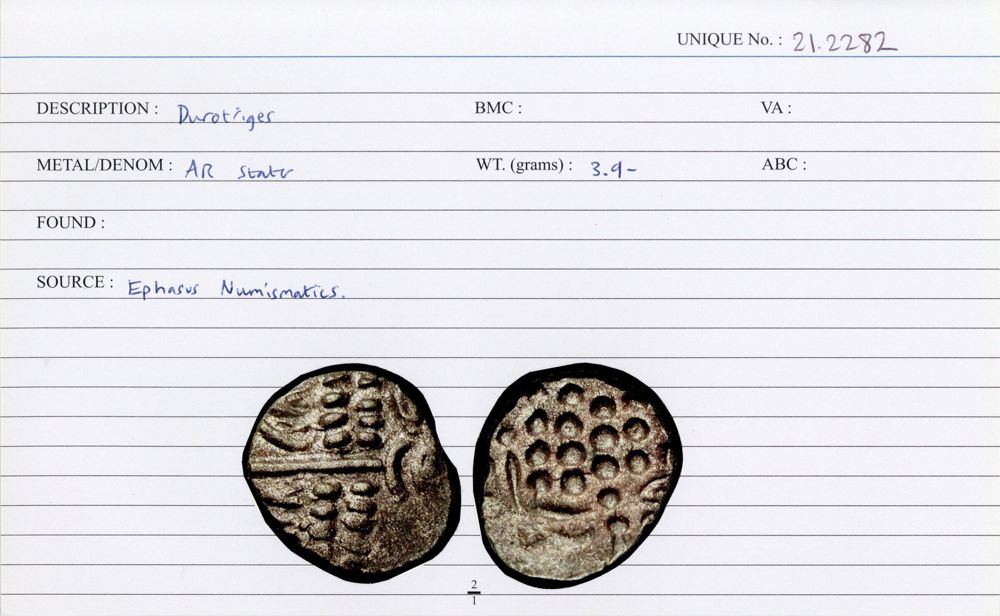 UNIQUE No. : 21.2282
DESCRIPTION : Durotriges BMC : VA :
METAL/DENOM : AR stater WT. (grams) : 3.9-
ABC :
FOUND :
SOURCE : Ephasus Numismatics.
2
1